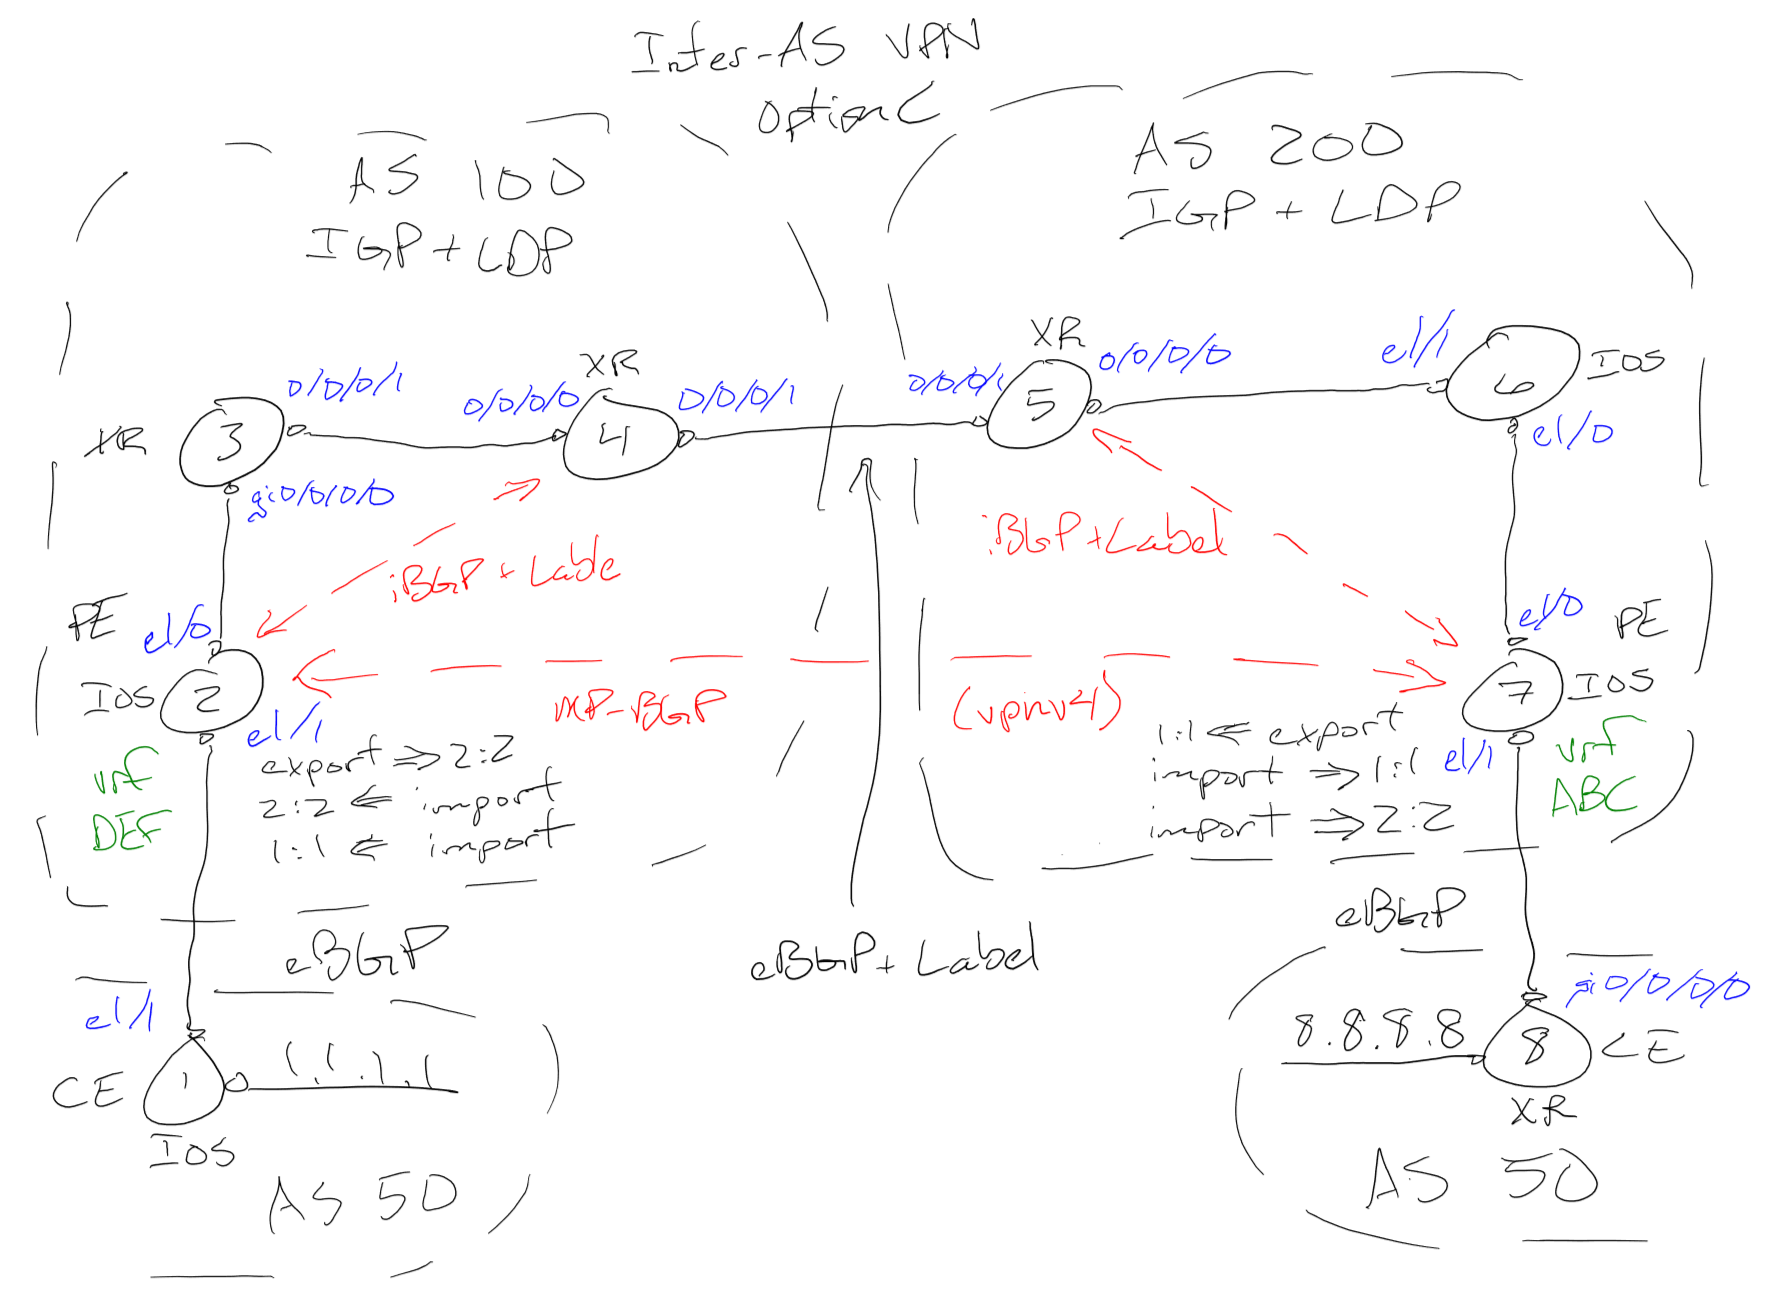 Inter-AS VPN
Option C
AS 100
IGP + LDP
AS 200
IGP + LDP
XR
3
0/0/0/1
gi0/0/0/0
XR
0/0/0/0
4
0/0/0/1
XR
0/0/0/1
5
0/0/0/0
e1/1
6
IOS
e1/0
iBGP + Lable
iBGP + Label
PE
e1/0
IOS
2
e1/1
vrf
DEF
export => 2:2
2:2 <= import
1:1 <= import
MP-BGP
(vpnv4)
e1/0
PE
7
IOS
e1/1
vrf
ABC
1:1 <= export
import => 1:1
import => 2:2
eBGP
eBGP + Label
eBGP
e1/1
CE
1
1.1.1.1
IOS
AS 50
gi0/0/0/0
8.8.8.8
8
CE
XR
AS 50